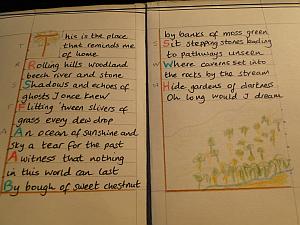 This is the place
that reminds me
of home
Rolling hills woodland
beech river and stone
Shadows and echoes of
ghosts I once knew
Flitting 'tween slivers of
grass every dew drop
An ocean of sunshine and
sky a tear for the past
A witness that nothing
in this world can last
By bough of sweet chestnut
by banks of moss green
Sit stepping stones leading
to pathways unseen
Where caverns set into
the rocks by the stream
Hide gardens of darkness
Oh long would I dream